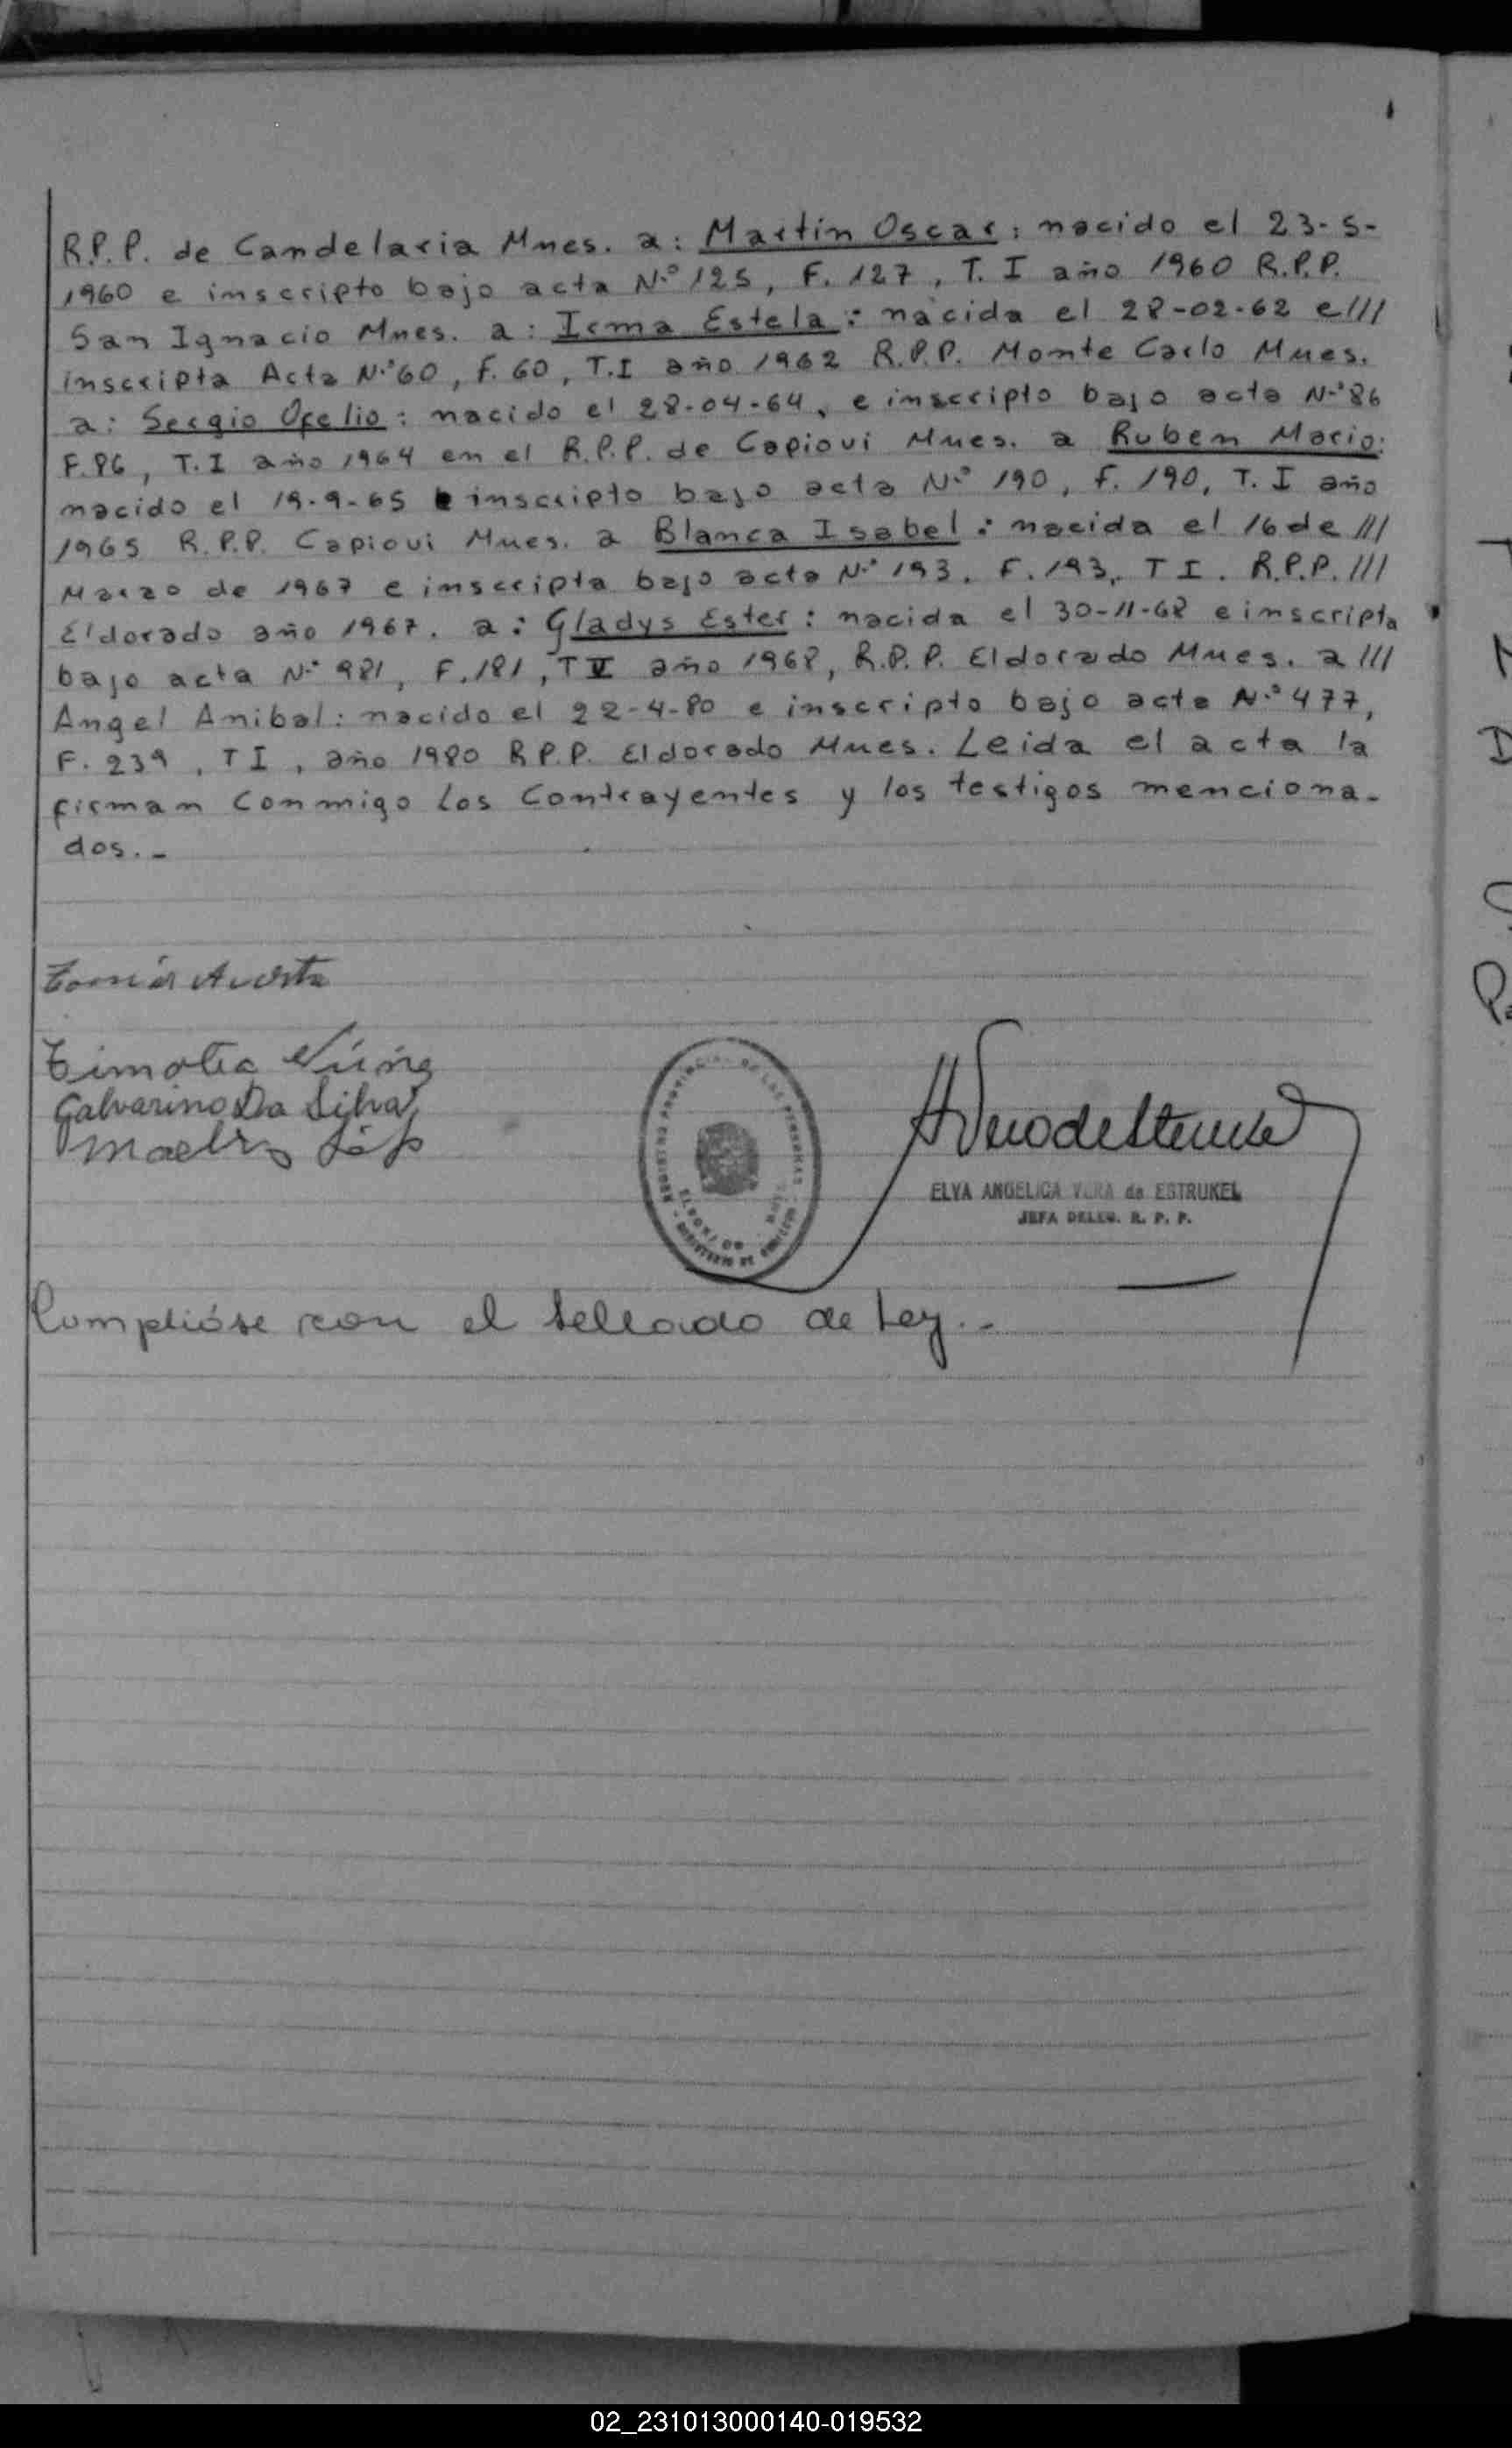 R.P.P. de Candelaria Mnes. a: Martin Oscar: nacido el 23-5-
1960 e inscripto bajo acta N.º 125, F. 127, T. I año 1960 R.P.P.
San Ignacio Mnes. a: Irma Estela: nacida el 28-02-62 e///
inscripta Acta N.º 60, F. 60, T.I año 1962 R.P.P. Monte Carlo Mnes.
a: Sergio Ofelio: nacido el 28-04-64, e inscripto bajo acta N.º 86
F.86, T.I año 1964 en el R.P.P. de Capiovi Mnes. a Ruben Mario:
nacido el 19-9-65 e inscripto bajo acta N.º 190, F. 190, T. I año
1965 R.P.P. Capiovi Mnes. a Blanca Isabel: nacida el 16 de ///
Marzo de 1967 e inscripta bajo acta N.º 193, F. 193, T I. R.P.P. ///
Eldorado año 1967. a: Gladys Ester: nacida el 30-11-68 e inscripta
bajo acta N.º 981, F. 181, T V año 1968, R.P.P. Eldorado Mnes. a ///
Angel Anibal: nacido el 22-4-80 e inscripto bajo acta N.º 477,
F. 239, T I, año 1980 R.P.P. Eldorado Mnes. Leida el acta la
firman conmigo los contrayentes y los testigos menciona-
dos.-
Tomás Acosta
Timotea
Galvarino Da Silva
REGISTRO PROVINCIAL DE LAS PERSONAS
ELDORADO
MINISTERIO DE GOBIERNO
ELVA ANGELICA VERA de ESTRUKEL
JEFA DELEG. R. P. P.
Cumplióse con el sellado de Ley.-
02_231013000140-019532